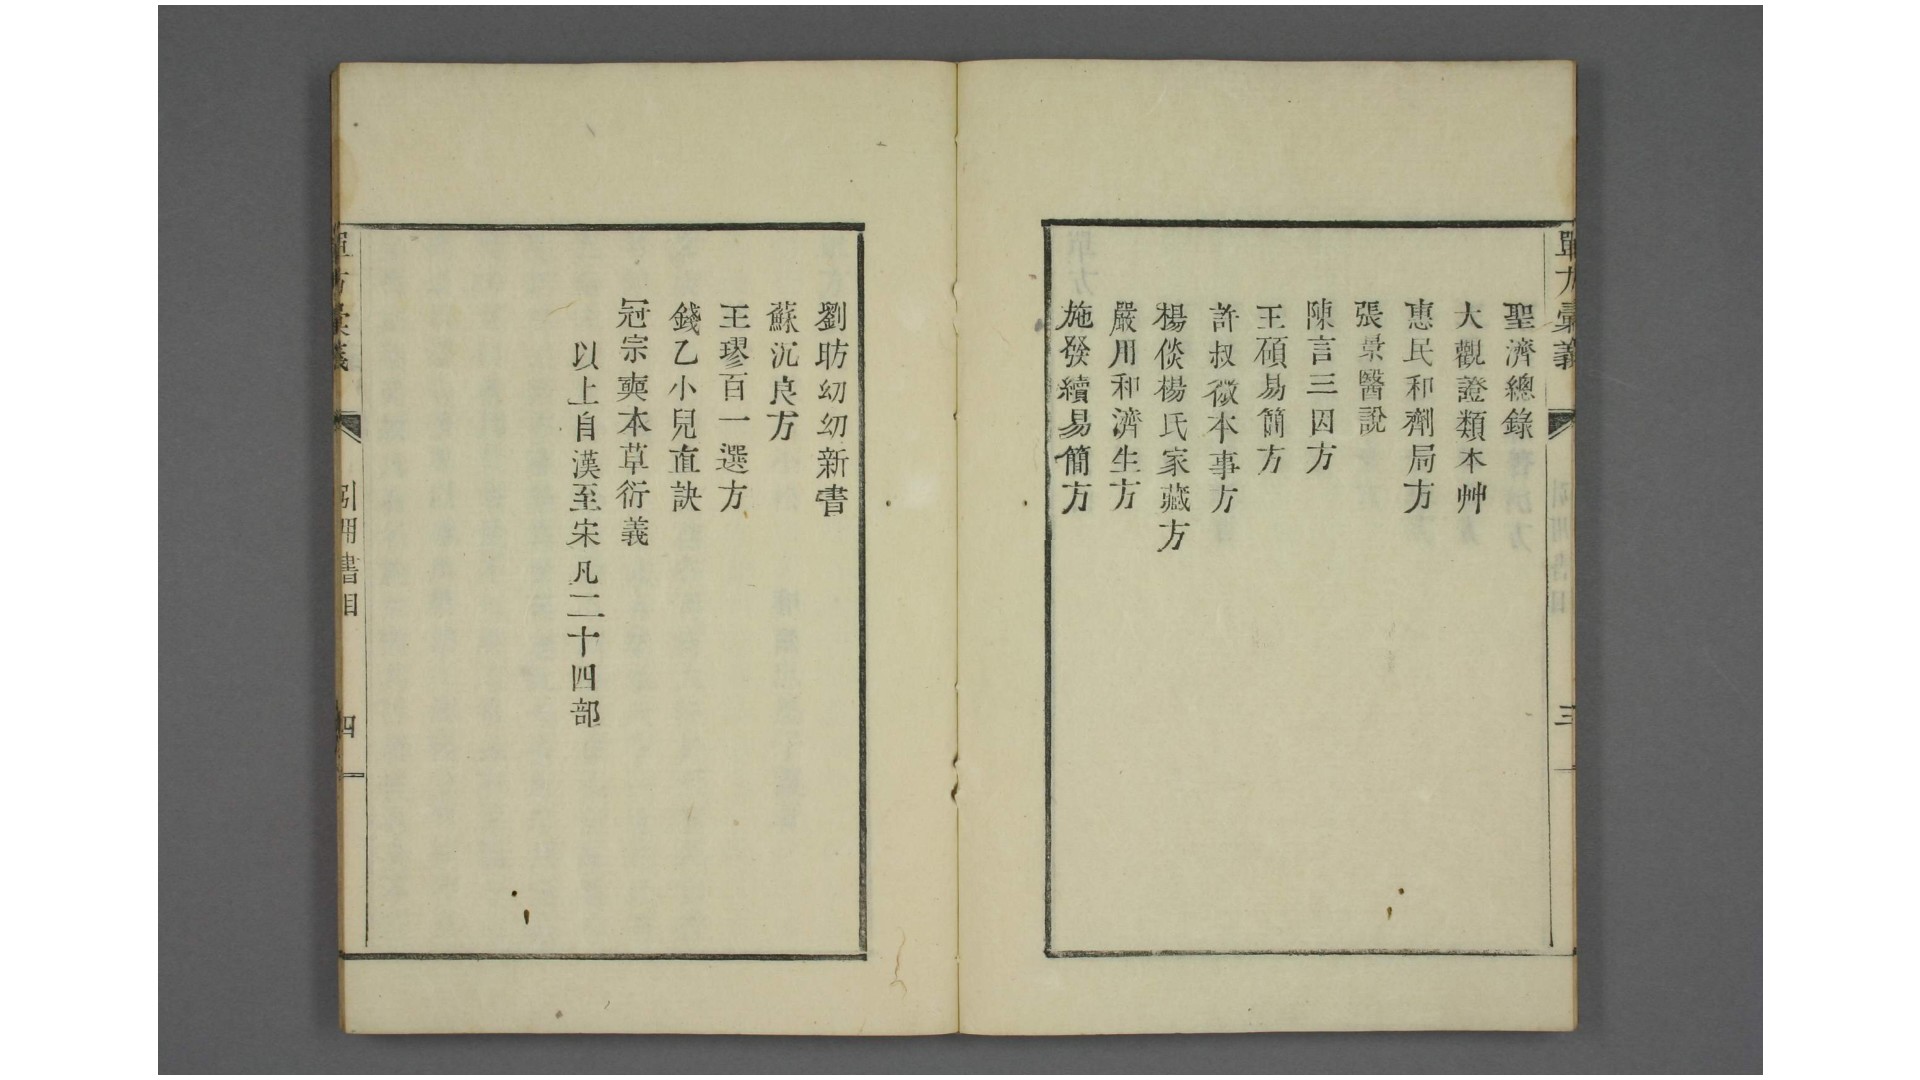 單方彙義
三
聖濟總錄
大觀證類本艸
惠民和劑局方
張杲醫說
陳言三因方
王碩易簡方
許叔微本事方
楊倓楊氏家藏方
嚴用和濟生方
施發續易簡方
劉昉幼幼新書
蘇沉良方
王璆百一選方
錢乙小兒直訣
冦宗奭本草衍義
以上自漢至宋凡二十四部
單方彙義
引用書目
四